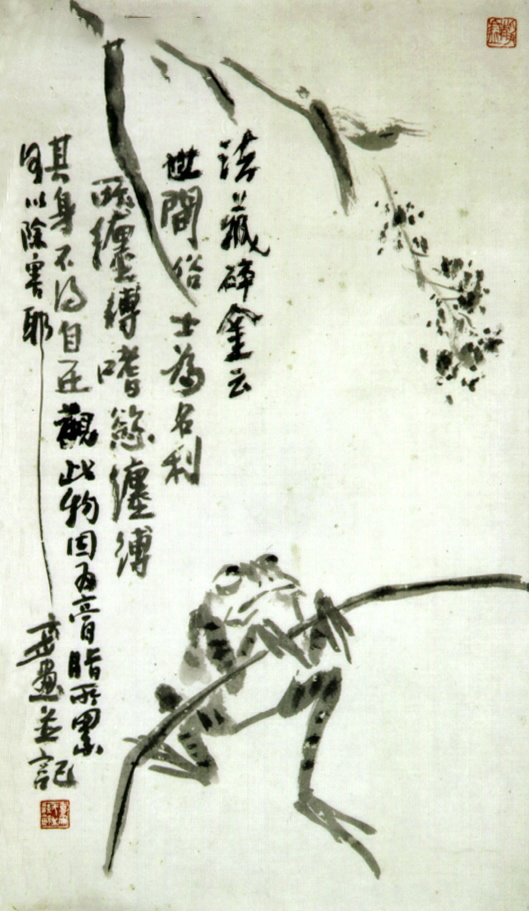 法藏碎金云
世間俗士為名利
所纏縛嗜慾纏縛
其身不得自在觀此物因為膏脂所累
何以除害耶
畫並記